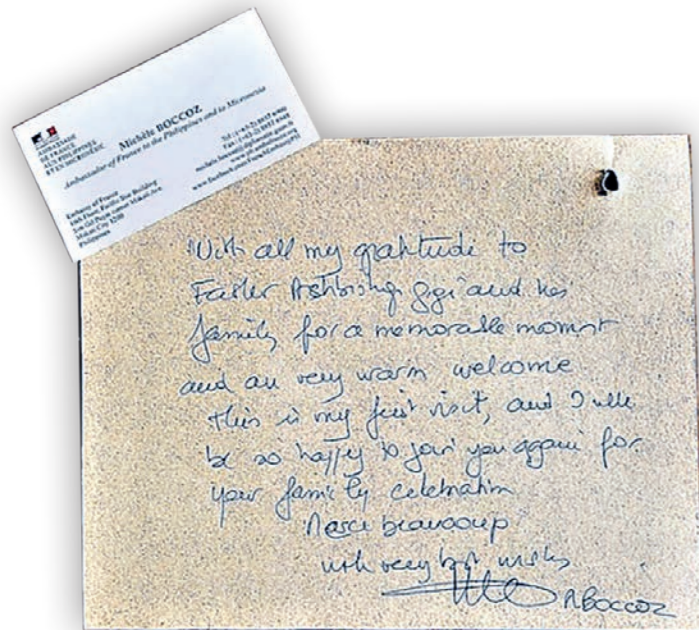 AMBASSADE
DE FRANCE
AUX PHILIPPINES
ET EN MICRONÉSIE
Michèle BOCCOZ
Ambassador of France to the Philippines and to Micronesia
Embassy of France
16th Floor, Pacific Star Building
Makati City 1200
Philippines
With all my gratitude to
gigi and his
family for a memorable moment
and an very warm welcome
this is my first visit, and I will
be so happy to join you again for
your family celebration
Merci beaucoup
with very best wishes
MBOCCOZ